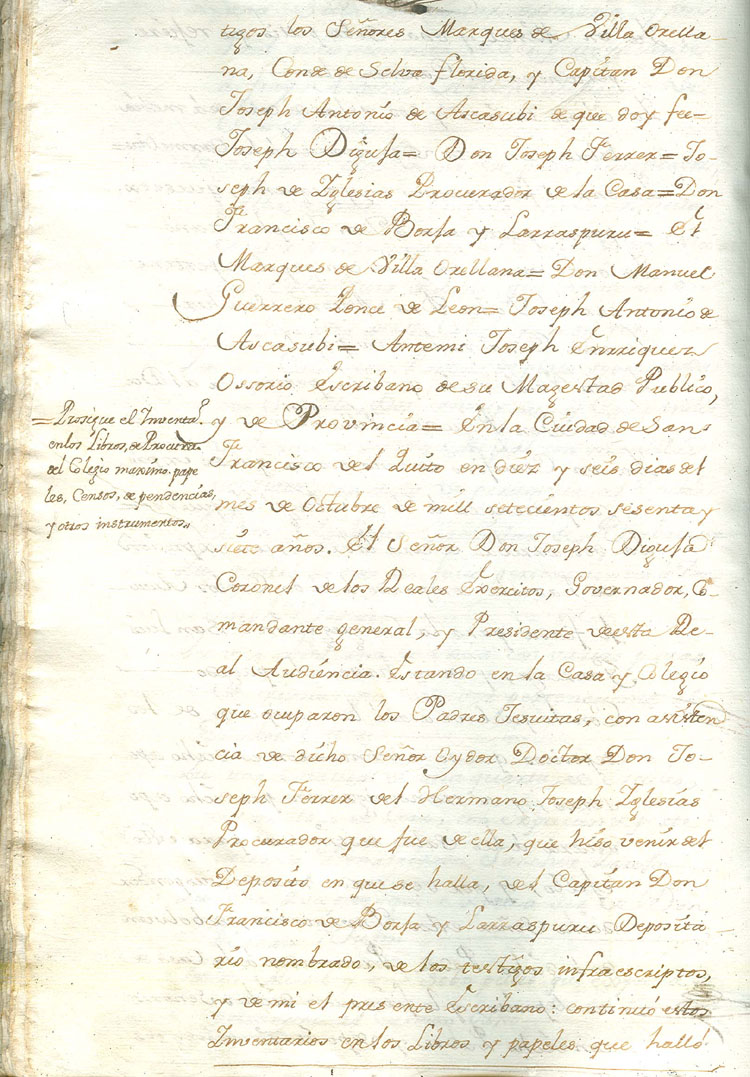 tigos los Señores Marques de Villa Orella-
na, Conde de Selva florida, y Capitan Don
Joseph Antonio de Ascasubi de que doy fee=
Joseph Diguja= Don Joseph Ferrer= Jo-
seph de Yglesias Procurador de la Casa= Don
Francisco de Borja y Larraspuru= El
Marques de Villa Orellana= Don Manuel
Guerrero Ponce de Leon= Joseph Antonio de
Ascasubi= Antemi Joseph Enrriquez
Ossorio Escribano de su Magestad Publico,
=Prosigue el Inventa.º
en los Libros, de Procura.
del Colegio maximo. pape
les, Censos, de pendencias,
y otros instrumentos.,
y de Provincia= En la Ciudad de San
Francisco del Quito en diez y seis dias del
mes de Octubre de mill setecientos sesenta y
siete años. El Señor Don Joseph Diguja
Coronel de los Reales Exercitos, Governador, Co-
mandante general, y Presidente de esta Re-
al Audiencia. Estando en la Casa y Colegio
que ocuparon los Padres Jesuitas, con asisten
cia de dicho Señor Oydor Doctor Don Jo-
seph Ferrer del Hermano Joseph Yglesias
Procurador que fue de ella, que hiso venir del
Deposito en que se halla, del Capitan Don
Francisco de Borja y Larraspuru Deposita
rio nombrado, de los testigos infraescriptos,
y de mi el presente Escribano: continuó estos
Inventarios en los Libros y papeles que halló